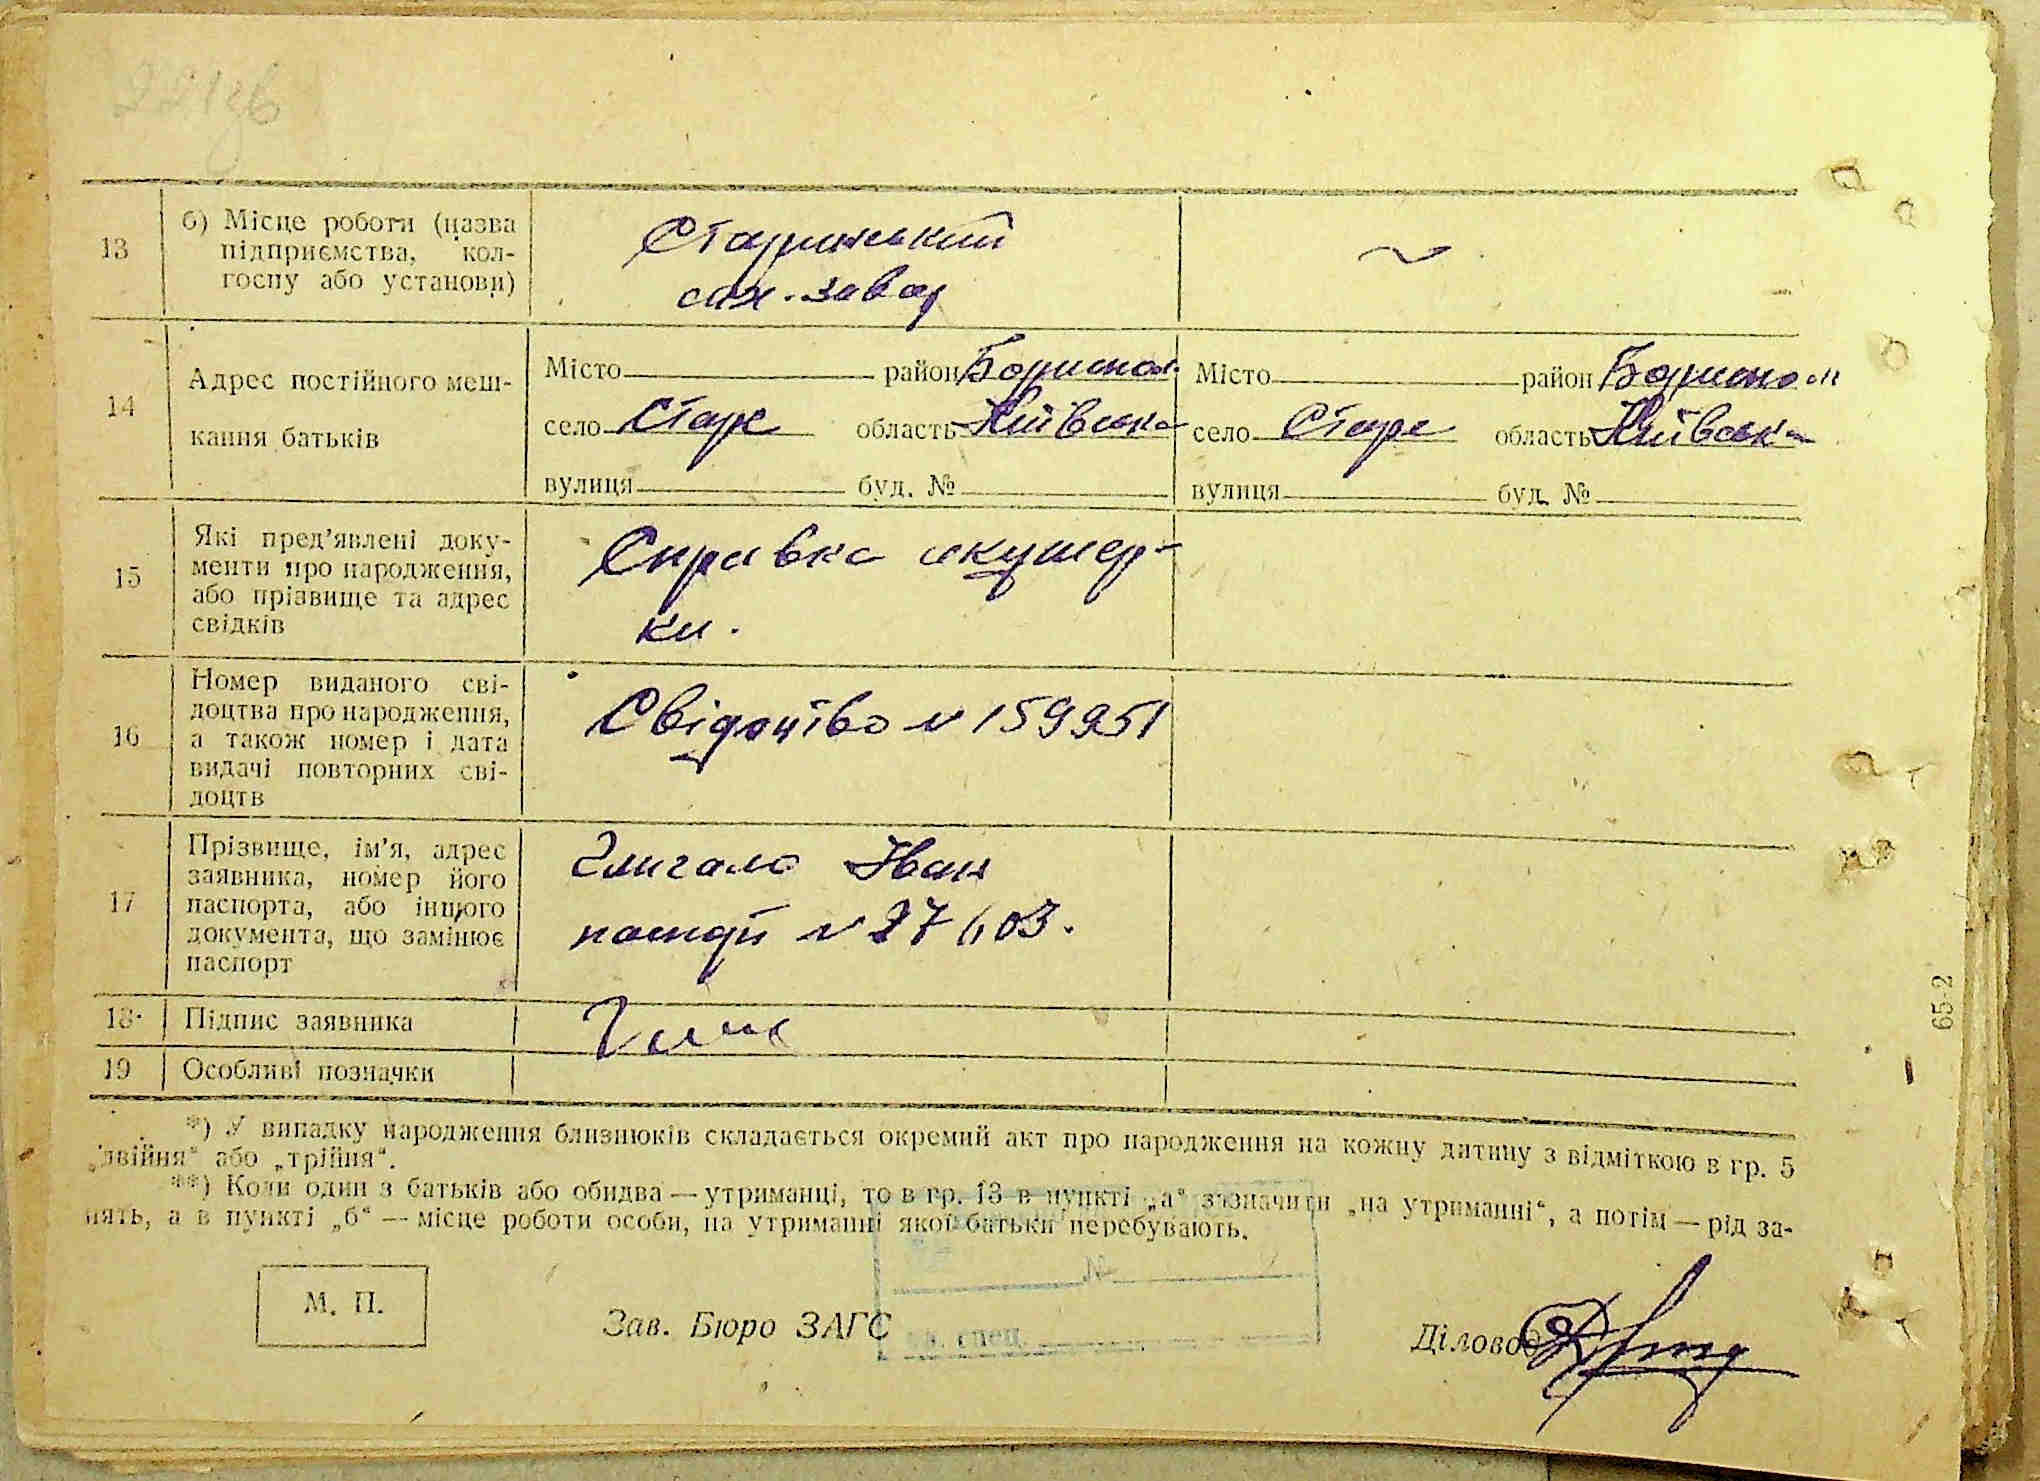 221зв
13
б) Місце роботи (назва
підприємства, кол-
госпу або установи)
Старинський
сах. завод
14
Адрес постійного меш-
кання батьків
Місто район Бориспол.
село Старе область Київська
вулиця буд. №
Місто район Бориспол
село Старе область Київська
вулиця буд. №
15
Які пред'явлені доку-
менти про народження,
або прізвище та адрес
свідків
Справка акушер-
ки.
16
Номер виданого сві-
доцтва про народження,
а також номер і дата
видачі повторних сві-
доцтв
Свідоцтво № 159951
17
Прізвище, ім'я, адрес
заявника, номер його
паспорта, або іншого
документа, що замінює
паспорт
Глигало Іван
18
Підпис заявника
19
Особливі позначки
*) У випадку народження близнюків складається окремий акт про народження на кожну дитину з відміткою в гр. 5
„двійня“ або „трійня“.
**) Коли один з батьків або обидва — утриманці, то в гр. 13 в пункті „а“ зазначити „на утриманні“, а потім — рід за-
нять, а в пункті „б“ — місце роботи особи, на утриманні якої батьки перебувають.
№
М. П.
Зав. Бюро ЗАГС
спец.
Діловод
65-2